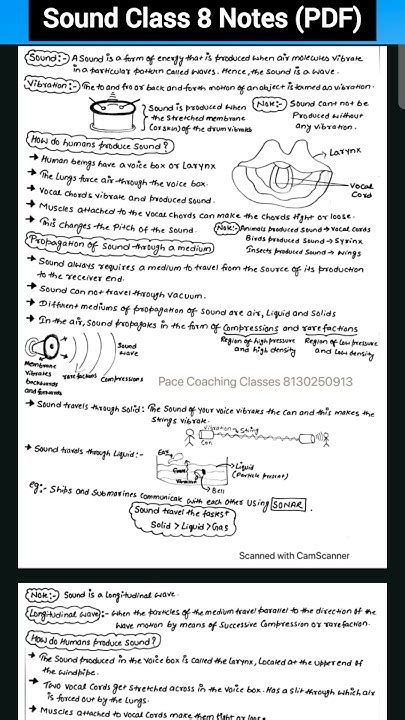 Sound Class 8 Notes (PDF)
Sound:- A Sound is a form of energy that is produced when air molecules vibrate
in a particular pattern called waves. Hence, the sound is a wave.
Vibration:- The to and fro or back and forth motion of an object is termed as vibration.
Sound is produced when
the stretched membrane
(or skin) of the drum vibrates
Note:- Sound can't not be
Produced without
any vibration.
How do humans produce Sound?
→ Human beings have a voice box or Larynx
→ The Lungs force air through the voice box.
→ Vocal chords vibrate and produced sound.
→ Muscles attached to the vocal chords can make the chords tight or loose.
→ This changes the pitch of the sound.
Larynx
Vocal
Cord
Note:- Animals produced Sound → Vocal Cords
Birds produced Sound → Syrinx
Insects produced Sound → Wings
Propagation of Sound through a medium
→ Sound always requires a medium to travel from the source of its production
to the receiver end.
→ Sound can not travel through vacuum.
→ Different mediums of propagation of sound are air, liquid and solids
→ In the air, sound propagates in the form of compressions and rarefactions
Region of high pressure
and high density
Region of low pressure
and low density
Sound
wave
Membrane
vibrates
backwards
and forwards
rarefactions
Compressions
Pace Coaching Classes 8130250913
→ Sound travels through Solid: The Sound of your voice vibrates the can and this makes the
strings vibrate.
Vibration String
Can
→ Sound travels through Liquid:-
Ear
Vibration
Liquid
(Particle present)
Bell
eg:- Ships and Submarines communicate with each other using SONAR.
Sound travel the fastest
Solid > Liquid > Gas
Scanned with CamScanner
Note:- Sound is a Longitudinal wave.
Longitudinal wave:- when the particles of the medium travel parallel to the direction of the
wave motion by means of Successive Compression or rarefaction.
How do Humans produce Sound?
→ The Sound produced in the Voice box is called the Larynx, Located at the upper end of
the windpipe.
→ Two vocal Cords get stretched across in the voice box. Has a slit through which air
is forced out by the Lungs.
→ Muscles attached to vocal Cords make them tight or loose